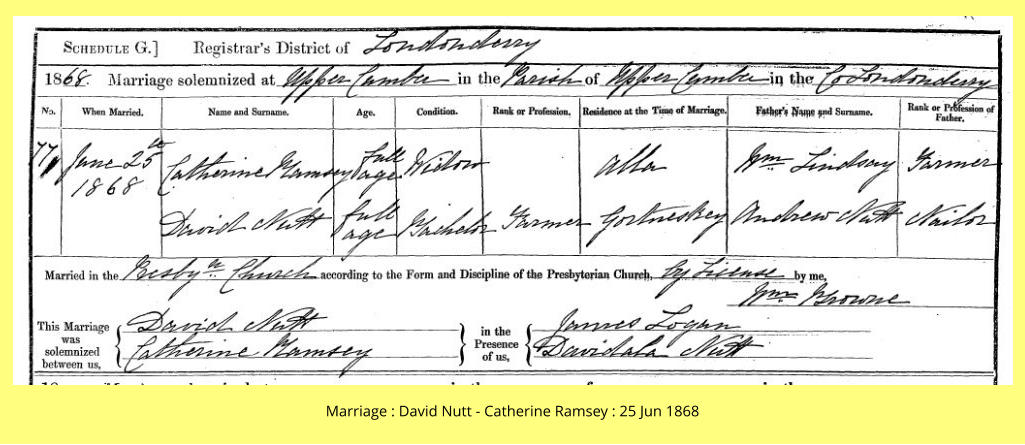 SCHEDULE G.] Registrar's District of Londonderry
1868. Marriage solemnized at Upper Cumber in the Parish of Upper Cumber in the Co Londonderry
No. When Married. Name and Surname. Age. Condition. Rank or Profession. Residence at the Time of Marriage. Father's Name and Surname. Rank or Profession of Father.
77 June 25th 1868 Catherine Ramsey full age Widow Alla Wm Lindsay Farmer
David Nutt full age Bachelor Farmer Gortneskey Andrew Nutt Nailor
Married in the Presbyn Church according to the Form and Discipline of the Presbyterian Church, by License by me,
Wm Browne
This Marriage was solemnized between us, { David Nutt } in the Presence of us, { James Logan
Catherine Ramsey Nutt
Marriage : David Nutt - Catherine Ramsey : 25 Jun 1868